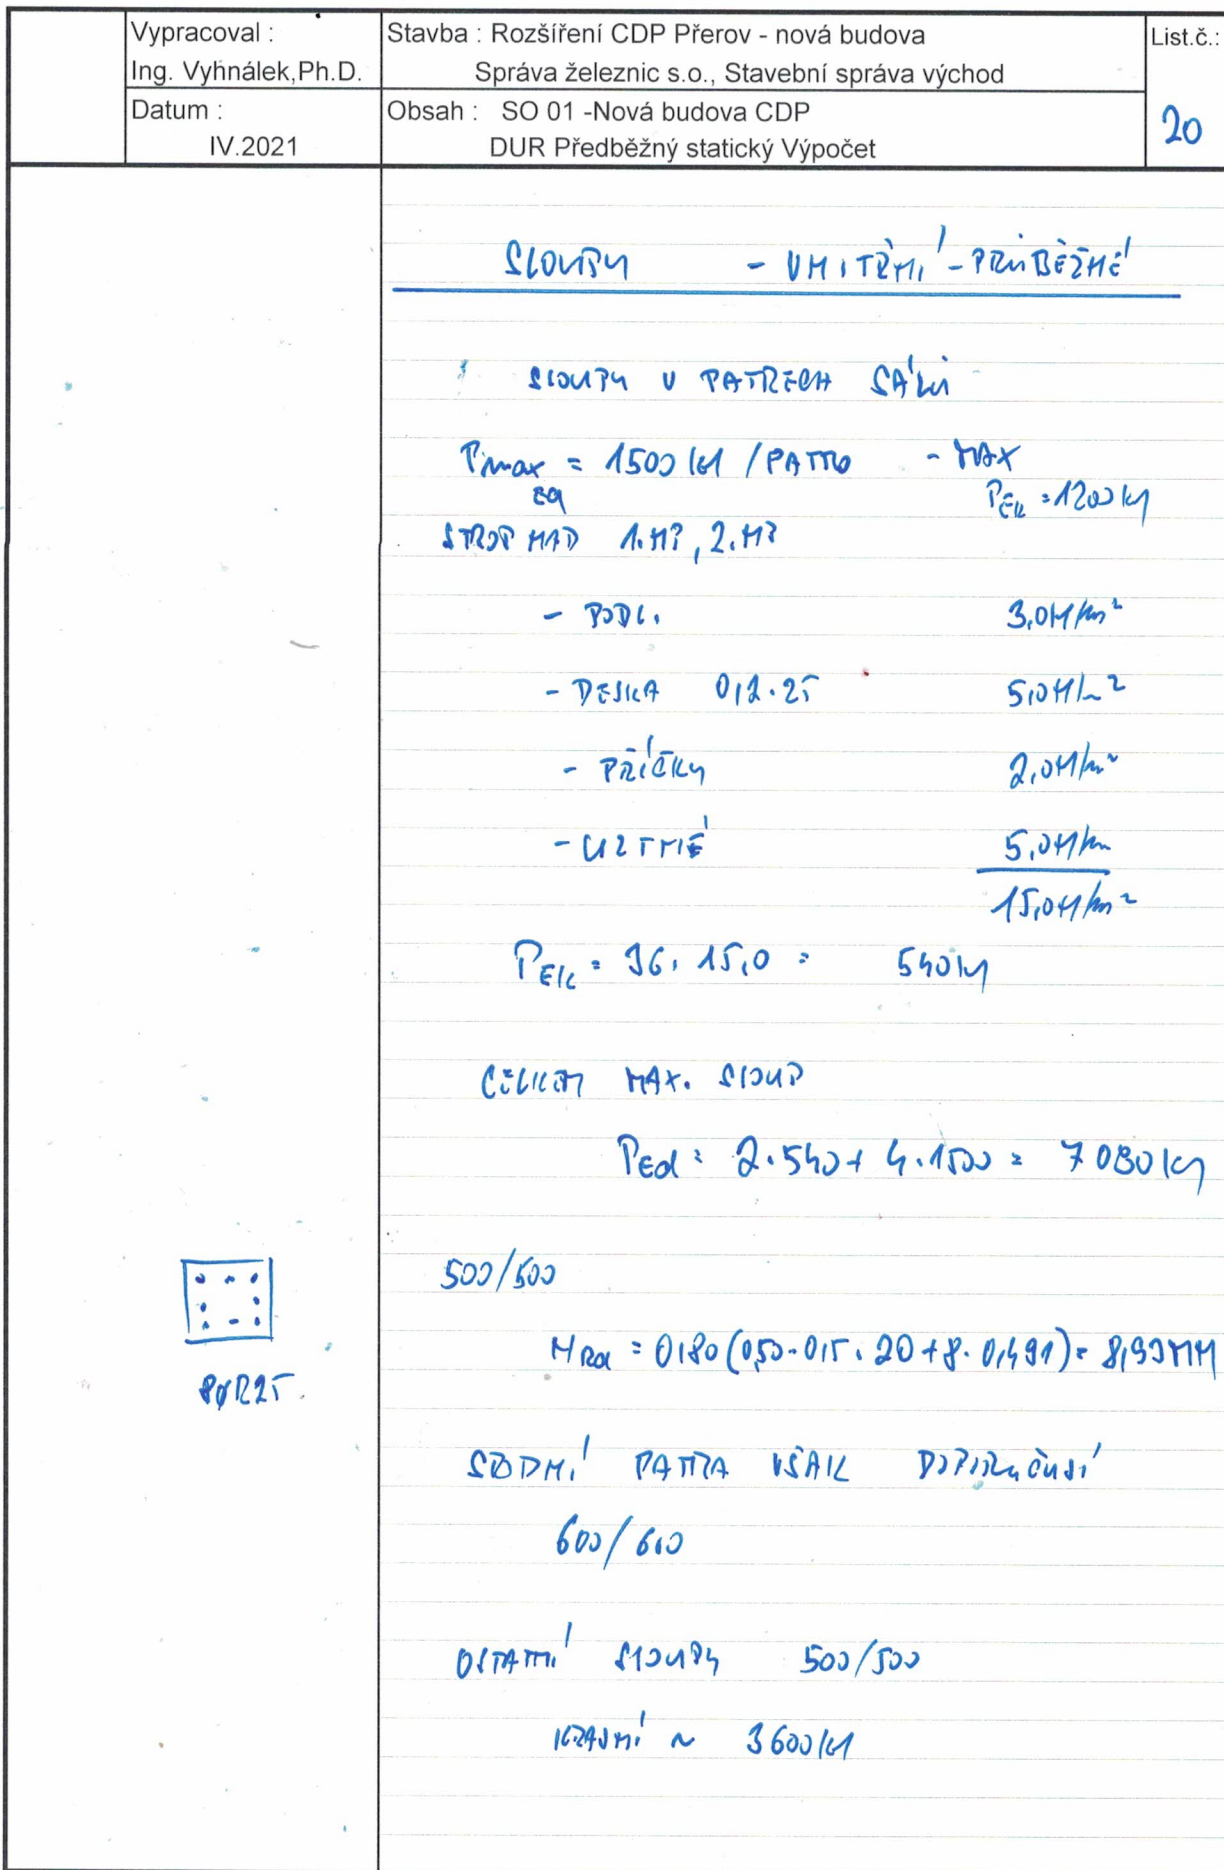 Vypracoval :
Ing. Vyhnálek,Ph.D.
Datum :
IV.2021
Stavba : Rozšíření CDP Přerov - nová budova
Správa železnic s.o., Stavební správa východ
Obsah : SO 01 -Nová budova CDP
DUR Předběžný statický Výpočet
List.č.:
20
SLOUPY - VNITŘNÍ - PRŮBĚŽNÉ
SLOUPY V PATRECH SÁLŮ
Pmax = 1500 kN / PATRO - MAX
Ed PEk = 1200 kN
STROP NAD 1.NP, 2.NP
- PODL. 3,0kN/m²
- DESKA 0,2.25 5,0kN/m²
- PŘÍČKY 2,0kN/m²
- UŽITNÉ 5,0kN/m
15,0kN/m²
PEk = 36. 15,0 = 540kN
CELKEM MAX. SLOUP
PEd = 2.540 + 4.1500 = 7080kN
500/500
NRd = 0,80 (0,50.0,5.20 + 8.0,491) = 8,93MN
8øR25.
SPODNÍ PATRA VŠAK DOPORUČUJI
600/600
OSTATNÍ SLOUPY 500/500
KRAJNÍ ~ 3600kN